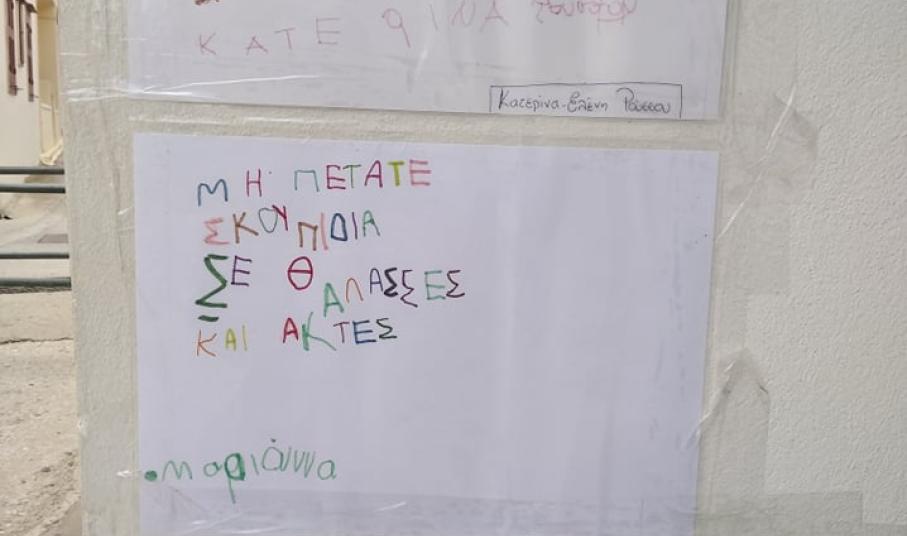 ΚΑΤΕΡΙΝΑ
Κατερίνα-Ελένη Ρούσσου
ΜΗ ΠΕΤΑΤΕ
ΣΚΟΥΠΙΔΙΑ
ΣΕ ΘΑΛΑΣΣΕΣ
ΚΑΙ ΑΚΤΕΣ
Μαριάννα